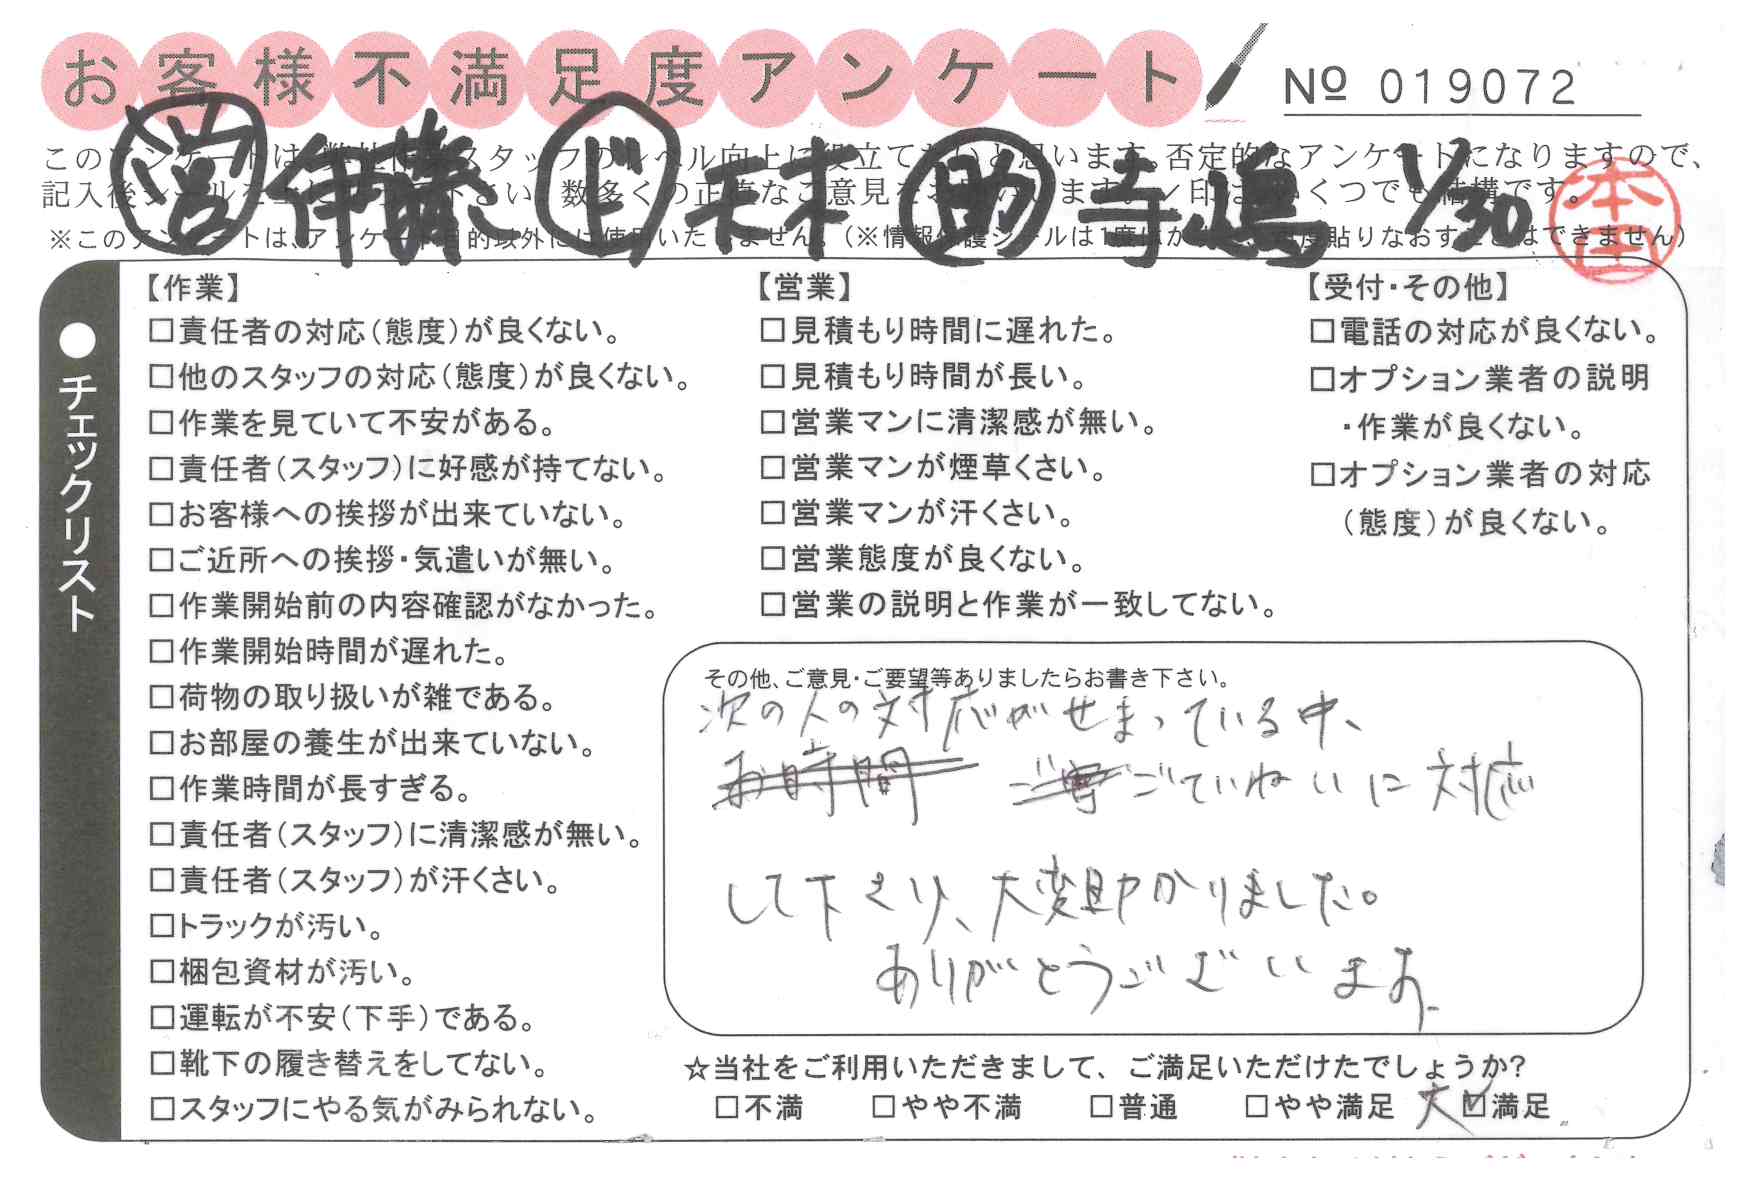 お客様不満足度アンケート
№ 019072
営 伊藤 ド 天木 助 寺嶋 1/30
本田
このアンケートは、弊社作業スタッフのレベル向上に役立てたいと思います。否定的なアンケートになりますので、
記入後シールを 下さい。数多くの正直なご意見をお います。✓印は、いくつでも結構です。
※このアンケートは、アンケート目的以外には使用いたしません。(※情報保護シールは1度はがすと、再度貼りなおすことはできません)
●チェックリスト
【作業】
□責任者の対応(態度)が良くない。
□他のスタッフの対応(態度)が良くない。
□作業を見ていて不安がある。
□責任者(スタッフ)に好感が持てない。
□お客様への挨拶が出来ていない。
□ご近所への挨拶・気遣いが無い。
□作業開始前の内容確認がなかった。
□作業開始時間が遅れた。
□荷物の取り扱いが雑である。
□お部屋の養生が出来ていない。
□作業時間が長すぎる。
□責任者(スタッフ)に清潔感が無い。
□責任者(スタッフ)が汗くさい。
□トラックが汚い。
□梱包資材が汚い。
□運転が不安(下手)である。
□靴下の履き替えをしてない。
□スタッフにやる気がみられない。
【営業】
□見積もり時間に遅れた。
□見積もり時間が長い。
□営業マンに清潔感が無い。
□営業マンが煙草くさい。
□営業マンが汗くさい。
□営業態度が良くない。
□営業の説明と作業が一致してない。
【受付・その他】
□電話の対応が良くない。
□オプション業者の説明
・作業が良くない。
□オプション業者の対応
(態度)が良くない。
その他、ご意見・ご要望等ありましたらお書き下さい。
次の人の対応がせまっている中、
お時間 ご ごていねいに対応
して下さり、大変助かりました。
ありがとうございます。
☆当社をご利用いただきまして、ご満足いただけたでしょうか?
□不満 □やや不満 □普通 □やや満足 大☑満足